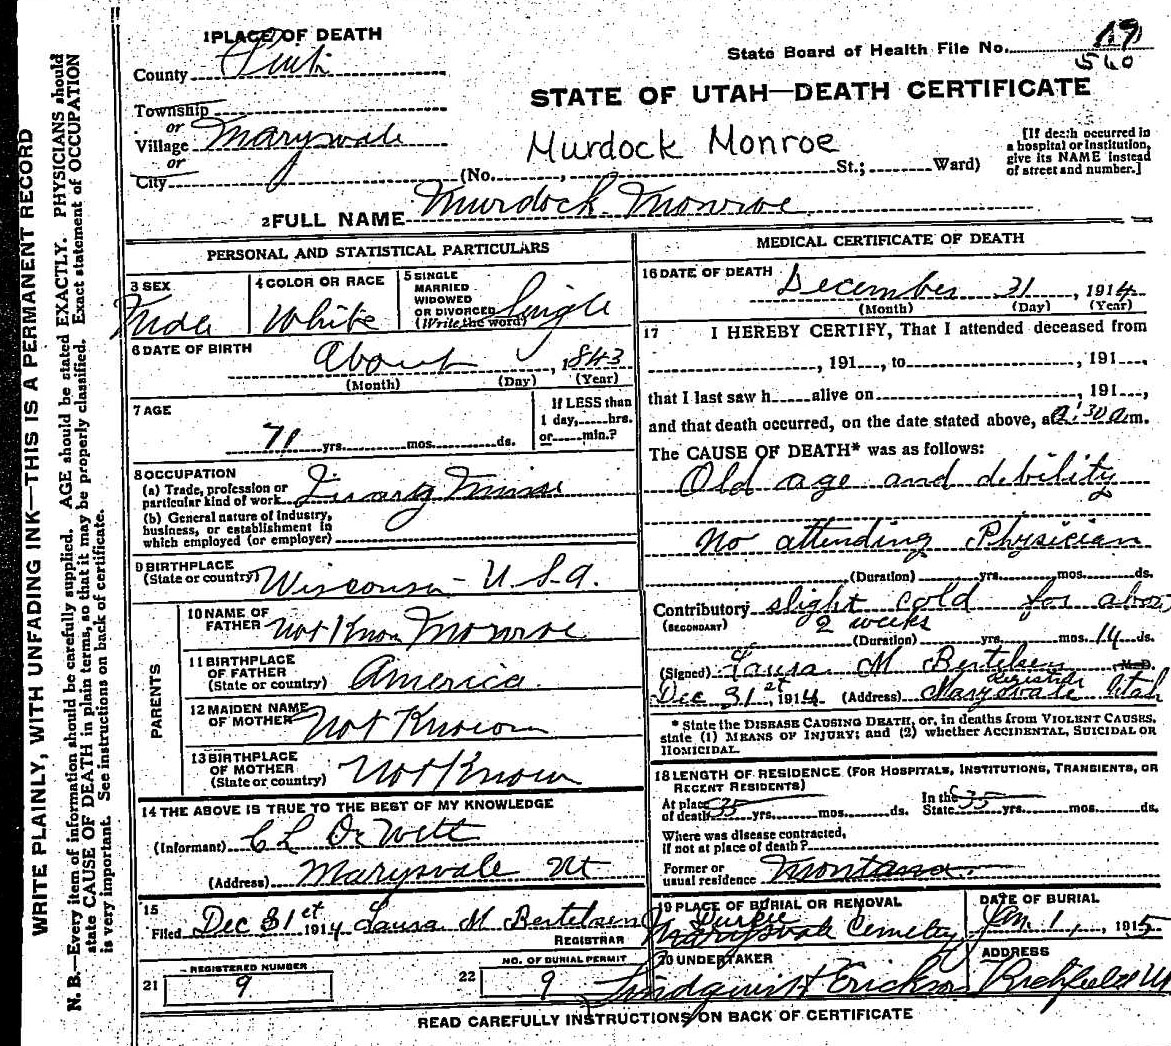 1 PLACE OF DEATH
County Piute
Township
or
Village Marysvale
or
City
State Board of Health File No. 19
560
STATE OF UTAH—DEATH CERTIFICATE
Murdock Monroe
(No. , St.; Ward)
[If death occurred in
a hospital or institution,
give its NAME instead
of street and number.]
2 FULL NAME Murdock Monroe
PERSONAL AND STATISTICAL PARTICULARS
3 SEX
Male
4 COLOR OR RACE
White
5 SINGLE
MARRIED
WIDOWED
OR DIVORCED
(Write the word)
Single
6 DATE OF BIRTH
About , 1843
(Month) (Day) (Year)
7 AGE
71 yrs. mos. ds.
If LESS than
1 day, hrs.
or min.?
8 OCCUPATION
(a) Trade, profession or
particular kind of work Quartz Miner
(b) General nature of industry,
business, or establishment in
which employed (or employer)
9 BIRTHPLACE
(State or country) Wisconsin - U.S.A.
PARENTS
10 NAME OF
FATHER Not Know Monroe
11 BIRTHPLACE
OF FATHER
(State or country) America
12 MAIDEN NAME
OF MOTHER Not Known
13 BIRTHPLACE
OF MOTHER
(State or country) Not Known
14 THE ABOVE IS TRUE TO THE BEST OF MY KNOWLEDGE
(Informant) C L De Witt
(Address) Marysvale Ut
15
Filed Dec 31st, 1914 Laura M Bertelsen
REGISTRAR
21 REGISTERED NUMBER
9
22 NO. OF BURIAL PERMIT
9
MEDICAL CERTIFICATE OF DEATH
16 DATE OF DEATH
December 31, 1914
(Month) (Day) (Year)
17 I HEREBY CERTIFY, That I attended deceased from
, 191 , to , 191 ,
that I last saw h alive on , 191 ,
and that death occurred, on the date stated above, at :30 a m.
The CAUSE OF DEATH* was as follows:
Old age and debility
No attending Physician
(Duration) yrs. mos. ds.
Contributory slight cold for about
(SECONDARY) 2 weeks
(Duration) yrs. mos. 14 ds.
(Signed) Laura M Bertelsen M.D.
Registrar
Dec 31st, 1914 (Address) Marysvale Utah
* State the DISEASE CAUSING DEATH, or, in deaths from VIOLENT CAUSES,
state (1) MEANS OF INJURY; and (2) whether ACCIDENTAL, SUICIDAL OR
HOMICIDAL.
18 LENGTH OF RESIDENCE (FOR HOSPITALS, INSTITUTIONS, TRANSIENTS, OR
RECENT RESIDENTS)
At place
of death 35 yrs. mos. ds.
In the
State 35 yrs. mos. ds.
Where was disease contracted,
if not at place of death?
Former or
usual residence Montana
19 PLACE OF BURIAL OR REMOVAL
Marysvale Cemetery
DATE OF BURIAL
Jan. 1, , 1915
20 UNDERTAKER
Lindquist Erickson
ADDRESS
Richfield Ut
READ CAREFULLY INSTRUCTIONS ON BACK OF CERTIFICATE
WRITE PLAINLY, WITH UNFADING INK—THIS IS A PERMANENT RECORD
N. B.—Every item of information should be carefully supplied. AGE should be stated EXACTLY. PHYSICIANS should
state CAUSE OF DEATH in plain terms, so that it may be properly classified. Exact statement of OCCUPATION
is very important. See instructions on back of certificate.